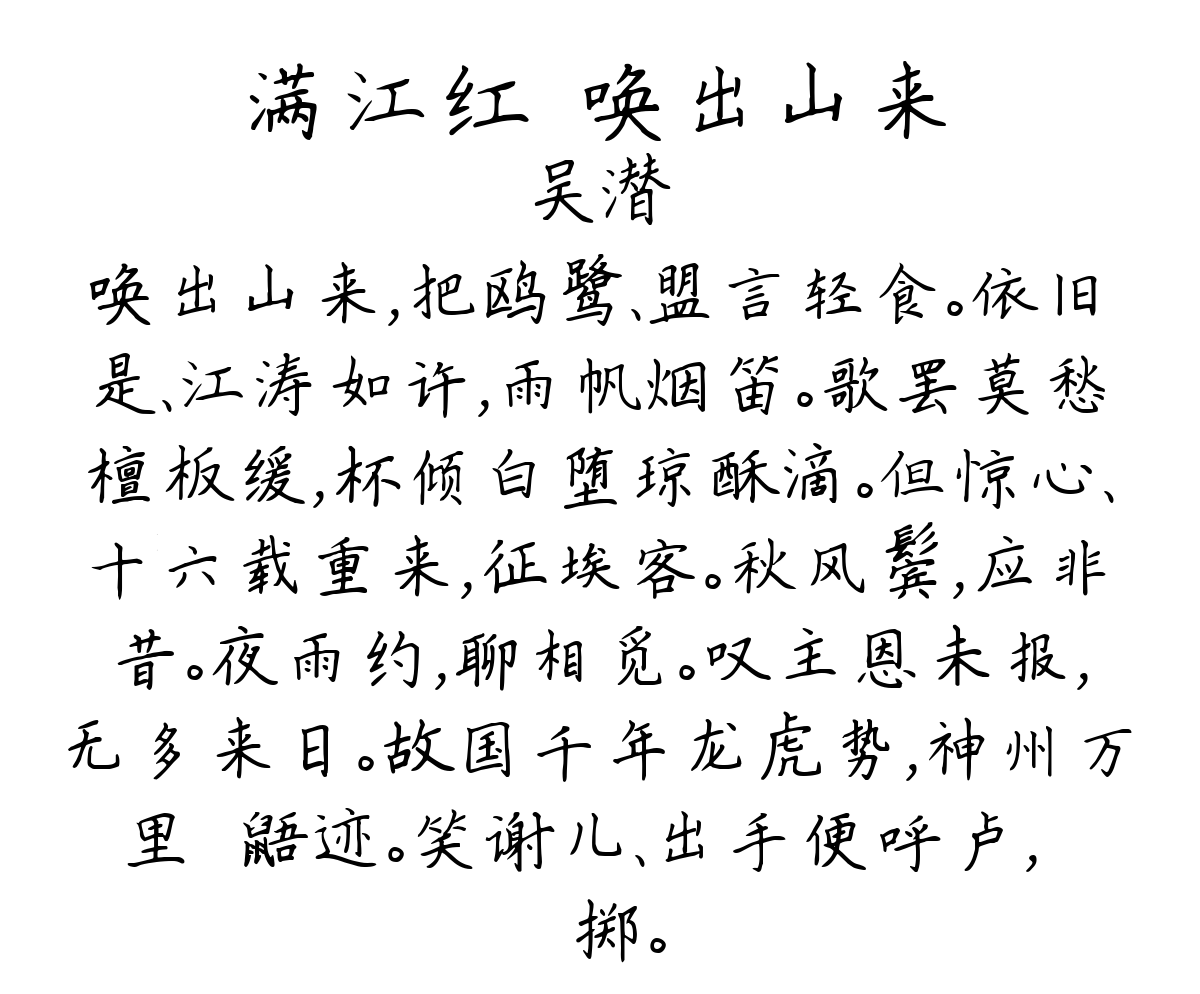 满江红 唤出山来
吴潜
唤出山来,把鸥鹭、盟言轻食。依旧
是、江涛如许,雨帆烟笛。歌罢莫愁
檀板缓,杯倾白堕琼酥滴。但惊心、
十六载重来,征埃客。秋风鬓,应非
昔。夜雨约,聊相觅。叹主恩未报,
无多来日。故国千年龙虎势,神州万
里 鼯迹。笑谢儿、出手便呼卢,
掷。